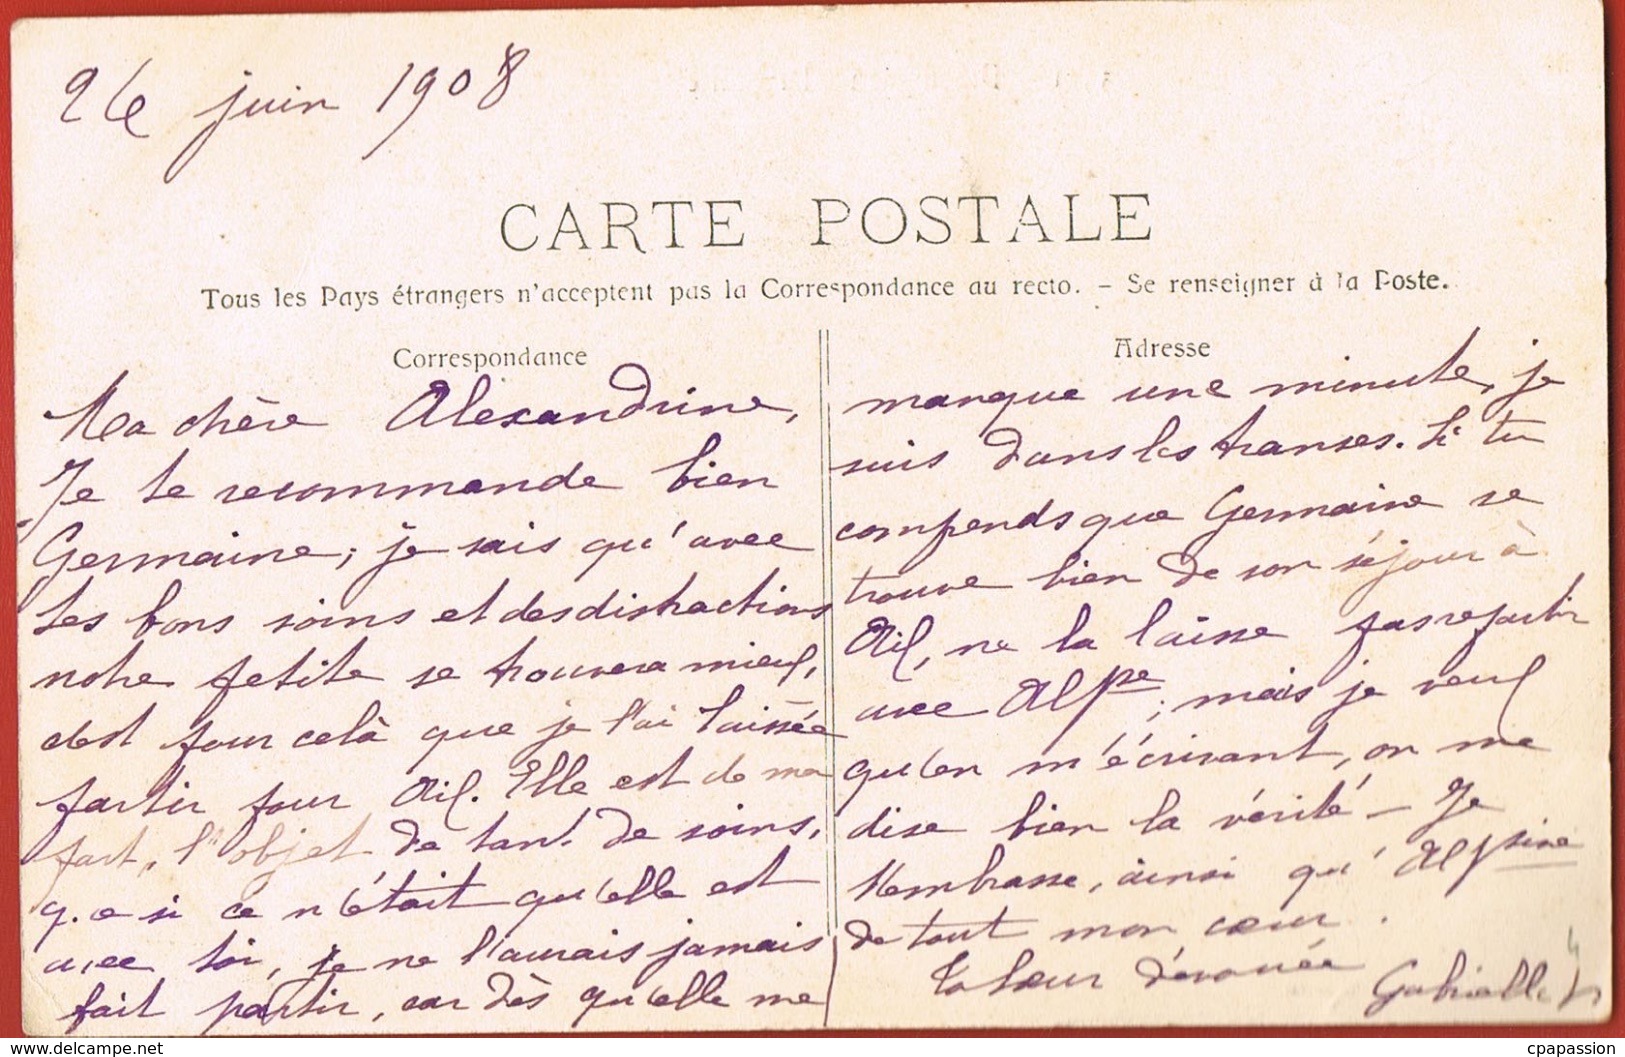 26 juin 1908
CARTE POSTALE
Tous les Pays étrangers n'acceptent pas la Correspondance au recto. - Se renseigner à la Poste.
Correspondance
Ma chère Alexandrine,
Je te recommande bien
Germaine; je sais qu'avec
tes bons soins et des distractions
notre petite se trouvera mieux,
c'est pour celà que je l'ai laissée
partir pour Ail. Elle est de ma
part, l'objet de tant de soins,
que si ce n'était qu'elle est
avec toi, je ne l'aurais jamais
fait partir, car dès qu'elle me
Adresse
manque une minute, je
suis dans les transes. Si tu
comprends que Germaine se
trouve bien de son séjour à
Ail, ne la laisse pas repartir
avec Alpne; mais je veux
qu'en m'écrivant, on me
dise bien la vérité - Je
t'embrasse, ainsi qu'
de tout mon cœur.
Ta sœur dévouée
Gabrielle
cpapassion
www.delcampe.net